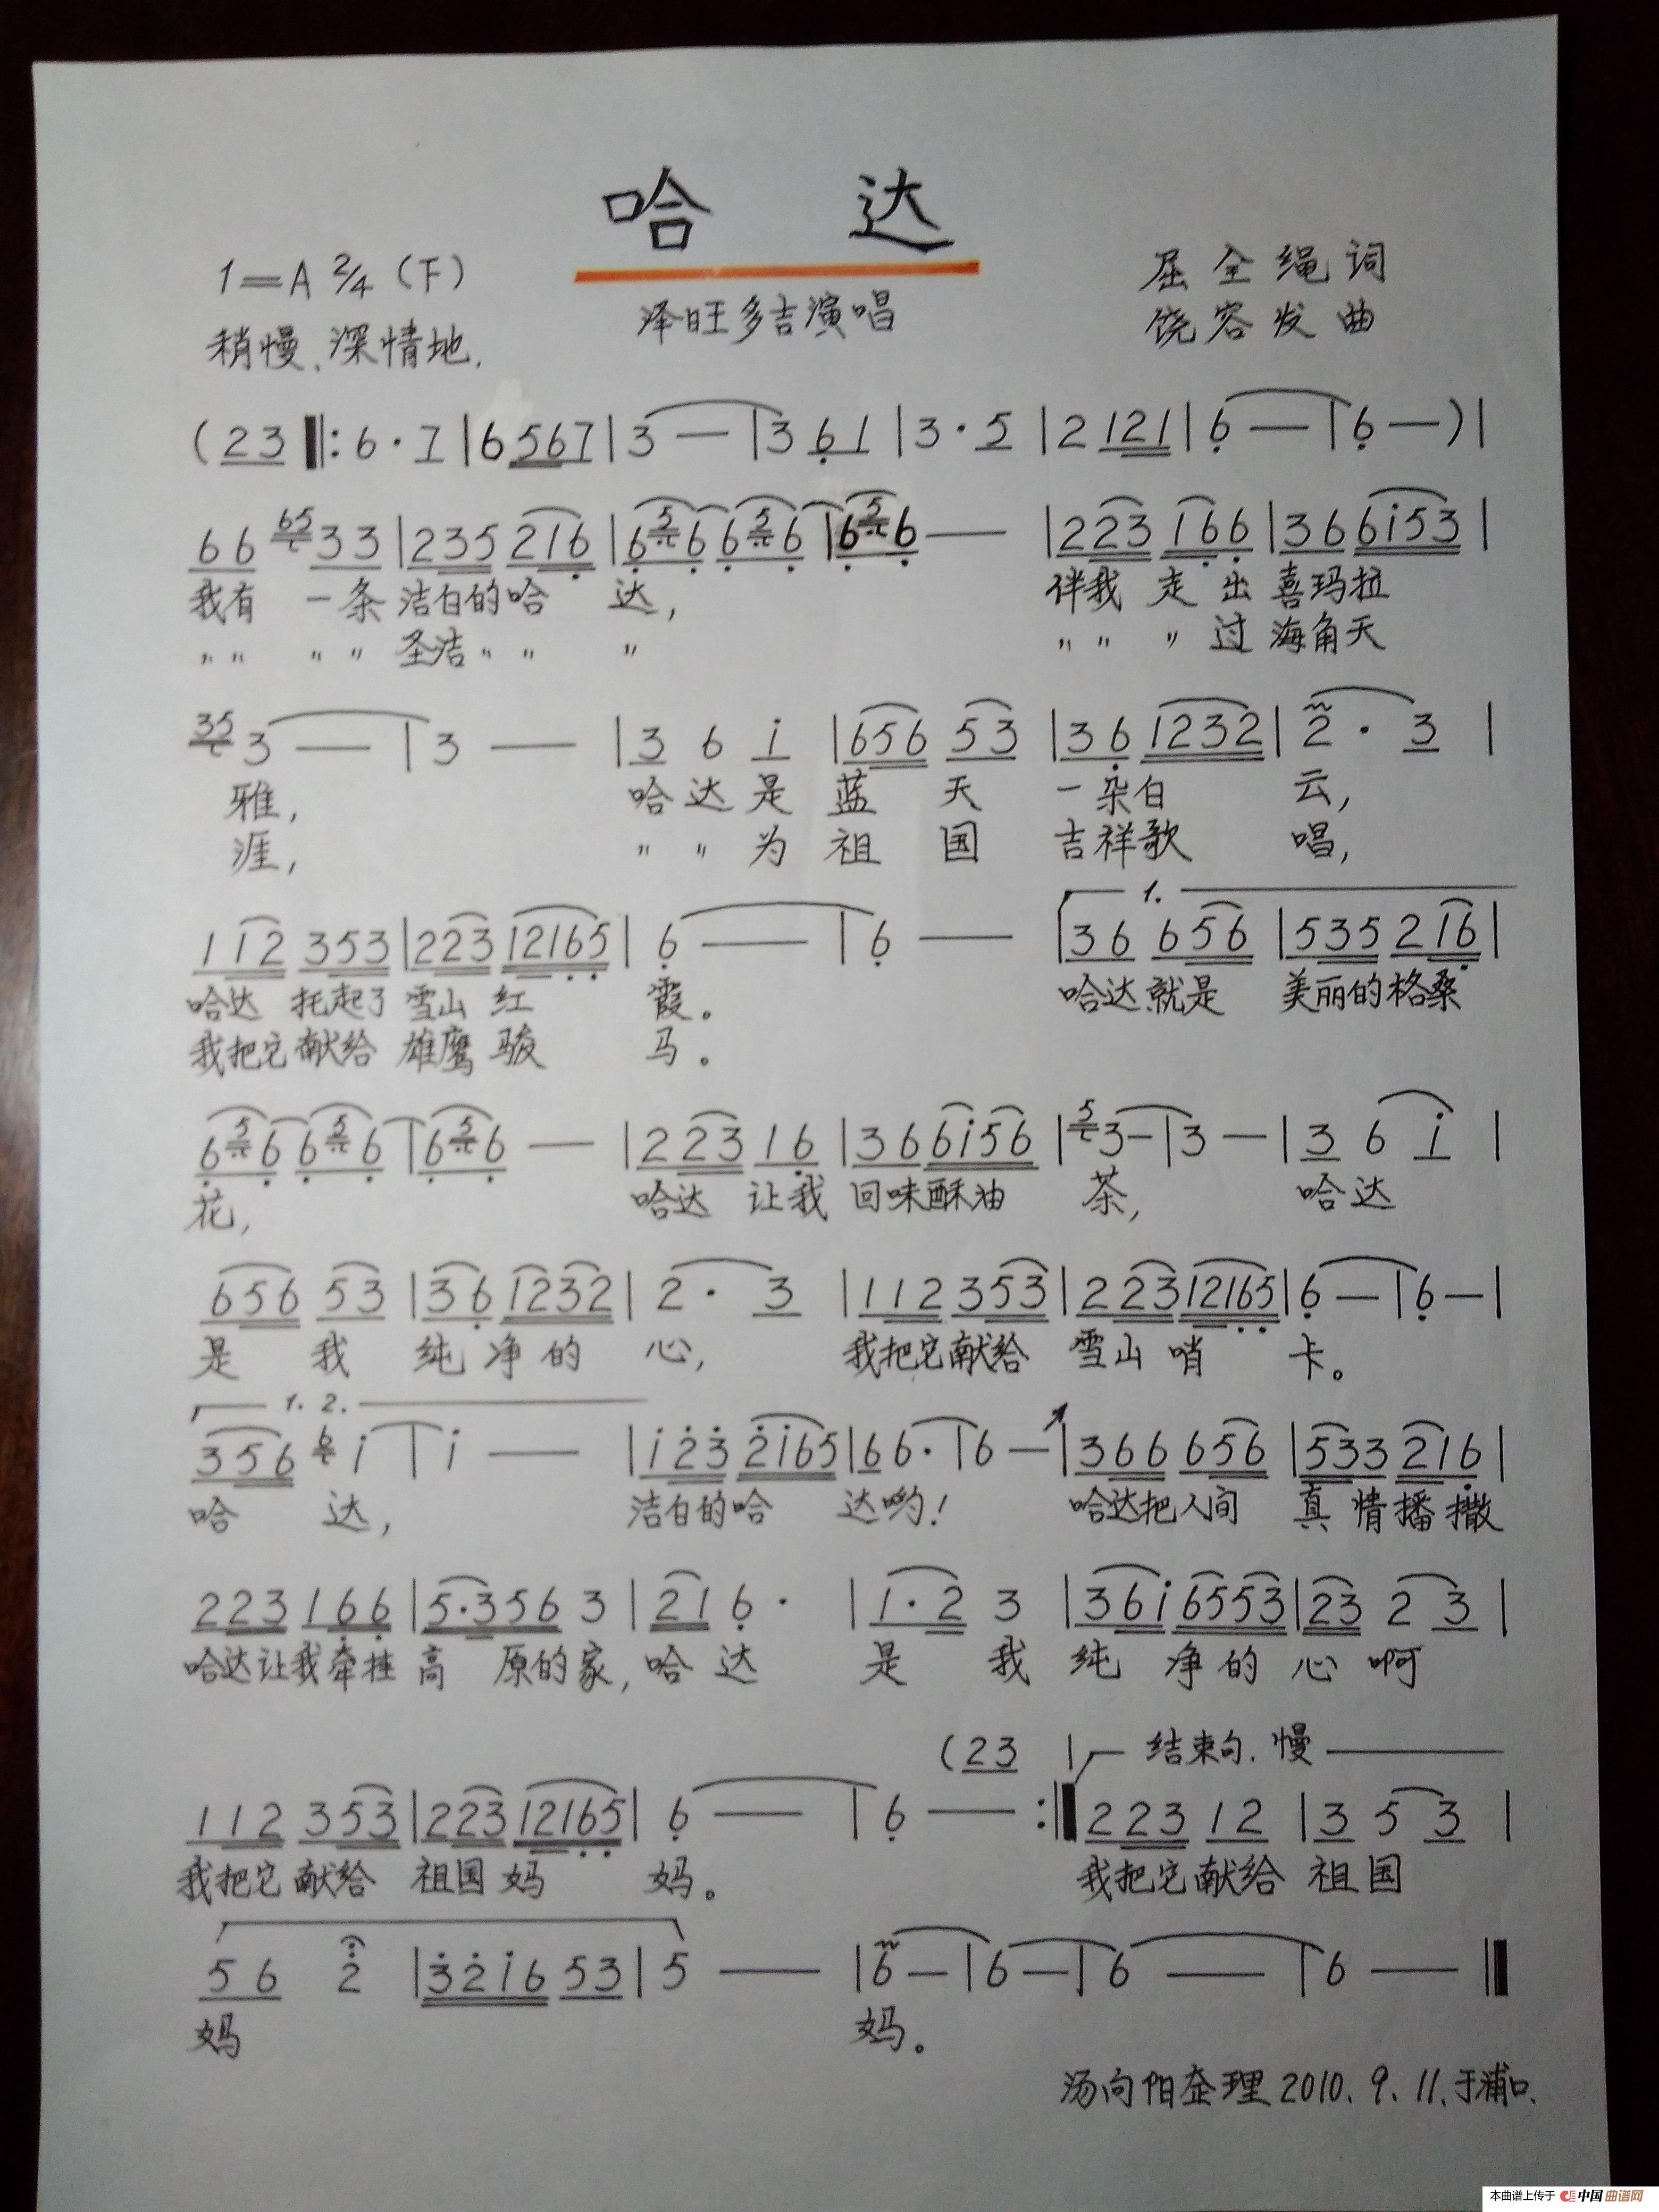 哈 达
1=A 2/4（下）
屈全绳词
泽旺多吉演唱
饶容发曲
稍慢、深情地.
(23 ‖: 6·7 | 6 567 | 3 — | 3 61 | 3·5 | 2 121 | 6 — | 6 — ) |
66 65 33 | 235 216 | 656 656 | 656 — | 223 166 | 36 6i53 |
我有 一条 洁白的哈 达， 伴我 走 出 喜玛拉
〃〃 〃〃 圣洁〃〃 〃 〃〃 〃 过 海角天
35 3 — | 3 — | 3 6 i | 656 53 | 36 1232 | 2· 3 |
雅， 哈 达 是 蓝 天 一朵白 云，
涯， 〃 〃 为 祖 国 吉祥歌 唱，
1.
112 353 | 223 12165 | 6 — | 6 — | 36 656 | 535 216 |
哈达 托起了 雪山 红 霞。 哈达就是 美丽的格桑
我把它献给 雄鹰 骏 马。
656 656 | 656 — | 223 16 | 36 6i56 | 5 3— | 3 — | 3 6 i |
花， 哈达 让我 回味酥油 茶， 哈达
656 53 | 36 1232 | 2· 3 | 112 353 | 223 12165 | 6 — | 6 — |
是 我 纯净的 心， 我把它献给 雪山 哨 卡。
1. 2.
356 6 i | i — | i23 2i65 | 66· | 6 — | 366 656 | 533 216 |
哈 达， 洁白的哈 达哟！ 哈达把人间 真情播撒
223 166 | 5·356 3 | 21 6· | 1·2 3 | 36i 6553 | 23 2 3 |
哈达让我牵挂 高 原的家，哈 达 是 我 纯 净的 心 啊
(23 | 结束句.慢
112 353 | 223 12165 | 6 — | 6 — :‖ 223 12 | 3 5 3 |
我把它献给 祖国妈 妈。 我把它献给 祖国
56 2 | 32i6 53 | 5 — | 6 — | 6 — | 6 — | 6 — ‖
妈 妈。
汤向阳整理2010.9.11.于浦口.
本曲谱上传于 中国曲谱网